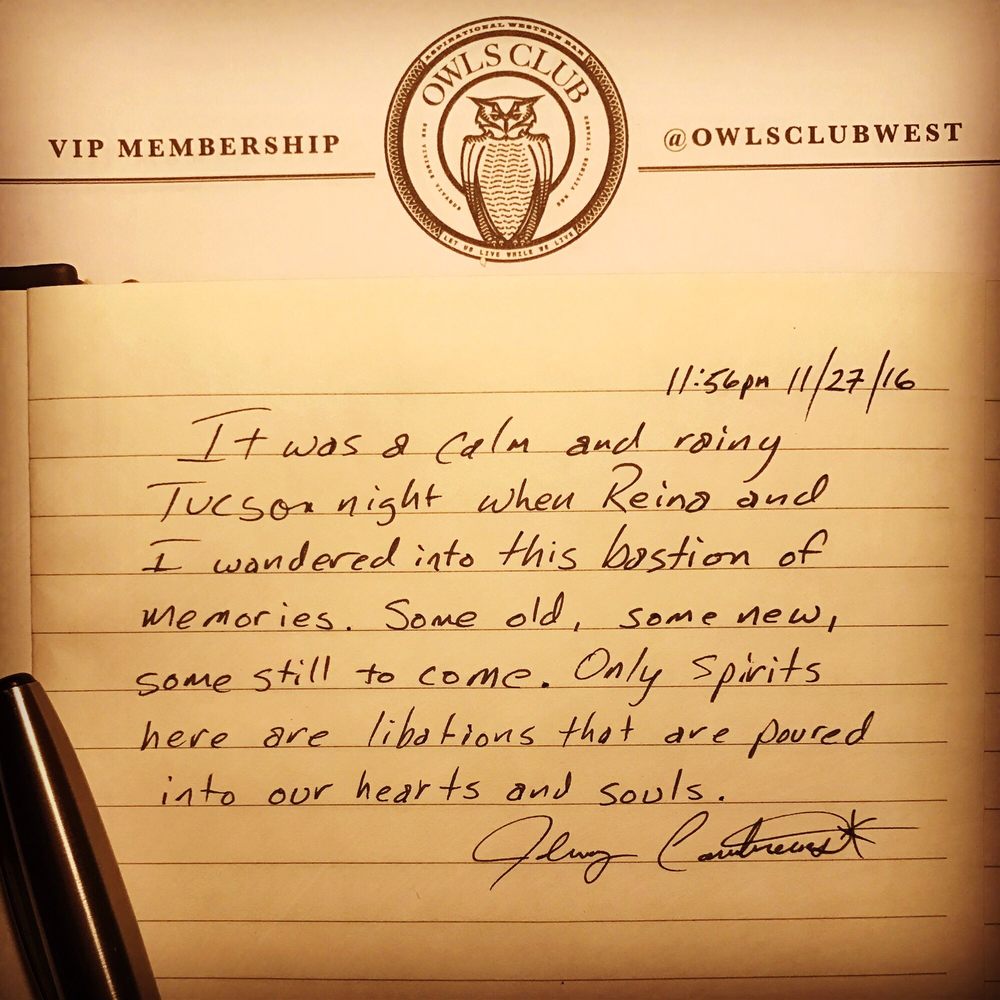 ASPIRATIONAL WESTERN BAR
OWLS CLUB
VIP MEMBERSHIP
@OWLSCLUBWEST
DUM VIVIMUS VIVAMUS
DUM VIVIMUS VIVAMUS
LET US LIVE WHILE WE LIVE
11:56pm 11/27/16
It was a calm and rainy
Tucson night when Reina and
I wandered into this bastion of
memories. Some old, some new,
some still to come. Only spirits
here are libations that are poured
into our hearts and souls.